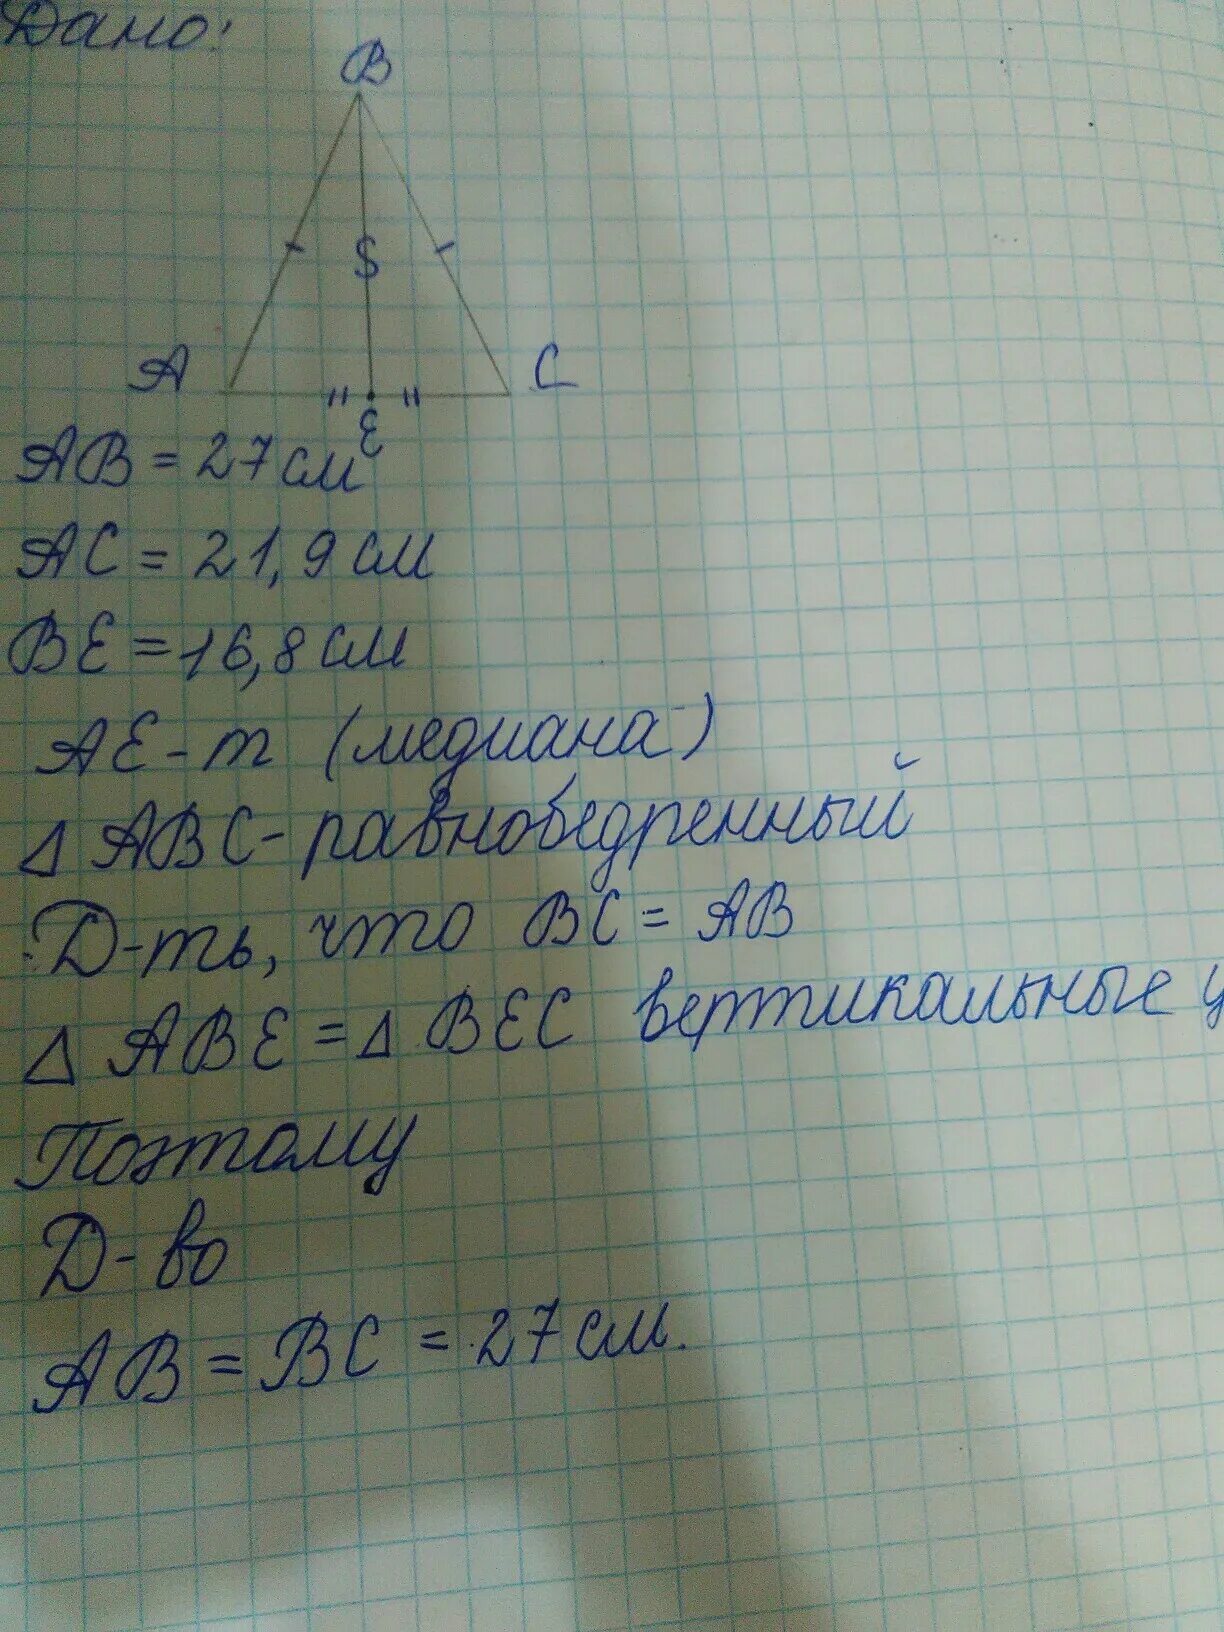 Дано:
B
S
A
C
E
AB = 27 см
AC = 21,9 см
BE = 16,8 см
AE - m (медиана)
Δ ABC - равнобедренный
Д-ть, что BC = AB
Δ ABE = Δ BEC вертикальные у
Поэтому
Д-во
AB = BC = 27 см.